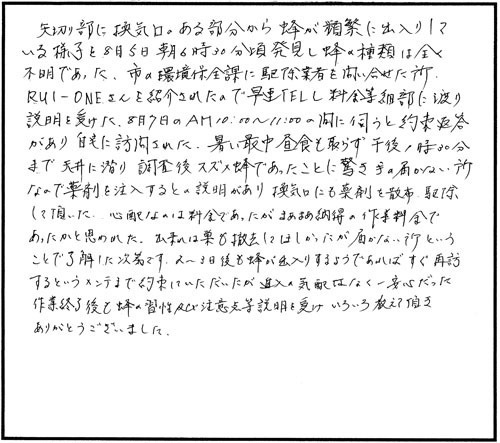 矢切部に換気口。ある部分から蜂が頻繁に出入りして
いる様子を8月5日朝6時30分頃発見し蜂の種類は全く
不明であった、市の環境保全課に駆除業者を問い合せた所
RUI-ONEさんを紹介されたので早速TELし料金等細部に渡り
説明を受けた、8月7日のAM10:00~11:00の間に伺うと約束返答
があり自宅に訪問された、暑い最中昼食も取らず午後1時30分
まで天井に潜り調査後スズメ蜂であったことに驚き手の届かない所
なので薬剤を注入するとの説明があり換気口にも薬剤を散布、駆除
して頂いた、心配なのは料金であったがまあまあ納得の作業料金で
あったかと思われた、出来れば巣も撤去してほしかったが届かない所という
ことで了解した次第です、2~3日後も蜂が出入りするようであればすぐ再訪
するというメンテまで約束していただいたが進入の気配はなく一安心だった
作業終了後も蜂の習性及び注意点等説明を受けいろいろ教えて頂き
ありがとうございました、